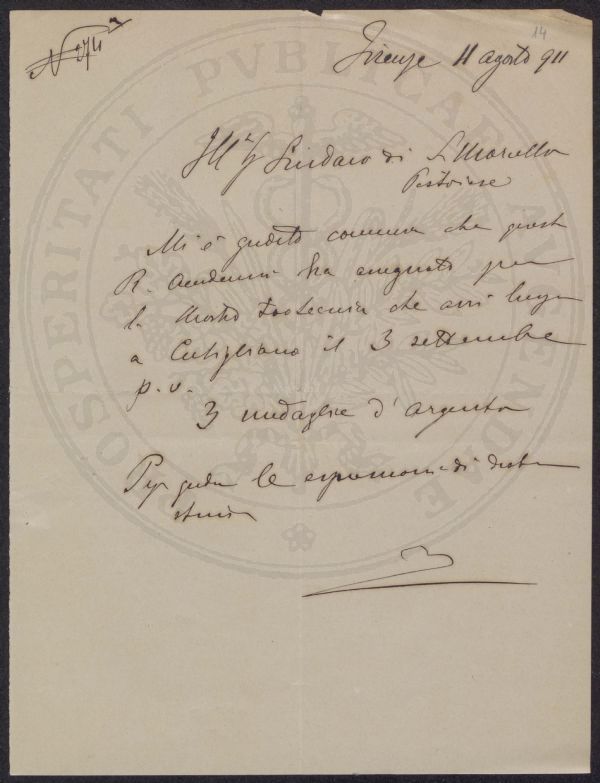 14
N 274
Firenze 11 agosto 911
PROSPERITATI PVBLICAE AVGENDAE
Ill. Sindaco di S. Marcello
Pistoiese
Mi è gradito comunicar che questa
R. Accademia ha assegnato per
la Mostra Zootecnica che avrà luogo
a Cutigliano il 3 settembre
p. v.
3 medaglie d'argento
Per gradire le espressioni di distinta
stima